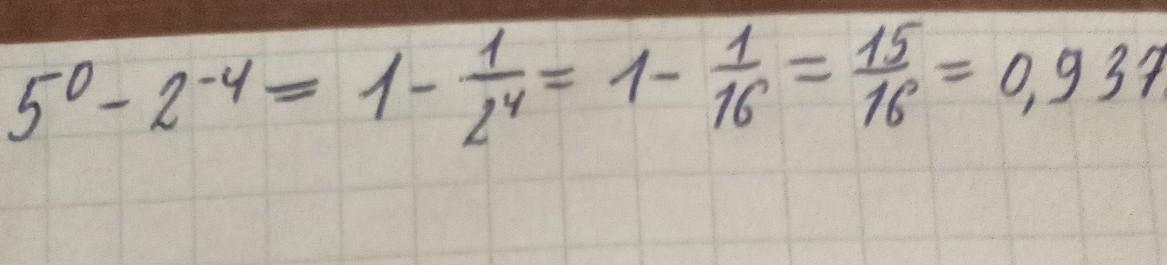 5⁰ - 2⁻⁴ = 1 - 1/2⁴ = 1 - 1/16 = 15/16 = 0,937